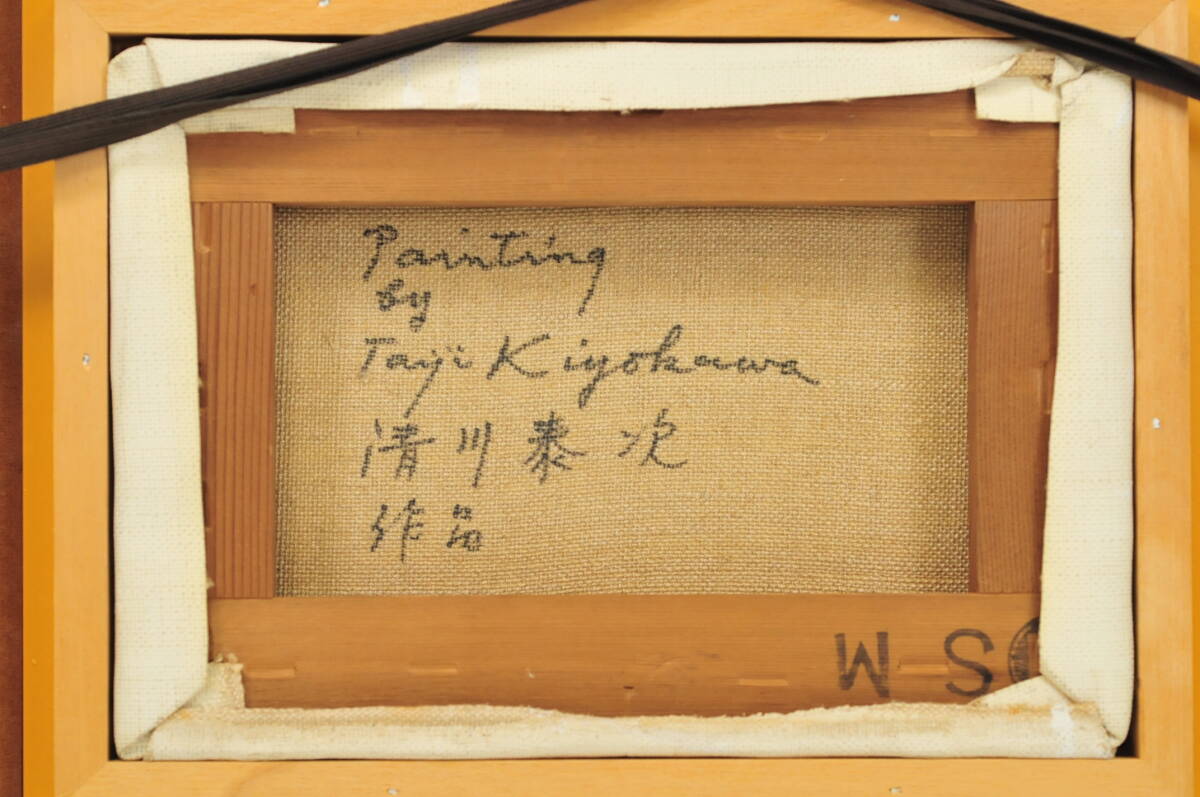 Painting
by
Taiji Kiyokawa
清川泰次
作品
W S